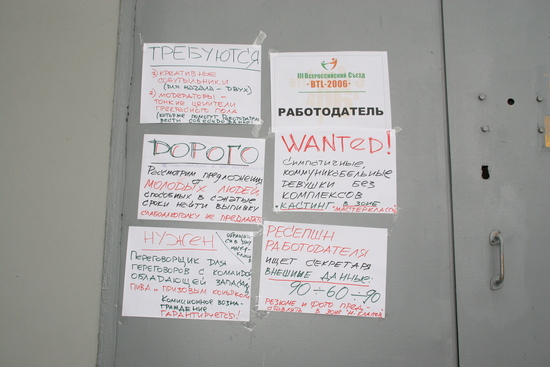 ТРЕБУЮТСЯ
1) КРЕАТИВНЫЕ
СОБУТЫЛЬНИКИ
(ДЛЯ НАЧАЛА - ДВУХ)
2) МОДЕРАТОРЫ -
ТОНКИЕ ЦЕНИТЕЛИ
ПРЕКРАСНОГО ПОЛА
(КОТОРЫЕ ПОМОГУТ РАБОТОДАТЕЛЮ
ВЕСТИ СОБЕСЕДОВАНИЕ)
III Всероссийский Съезд
·BTL-2006·
РАБОТОДАТЕЛЬ
ДОРОГО
Рассмотрим предложения
от
МОЛОДЫХ ЛЮДЕЙ,
способных в сжатые
сроки найти выпивку
СЛАБОАЛКОГОЛКУ НЕ ПРЕДЛАГАТЬ
WANTED!
Симпатичные,
коммуникабельные
девушки без
комплексов
КАСТИНГ В ЗОНЕ
МАСТЕРКЛАССА
НУЖЕН
ОБРАЩАТЬСЯ В ЗОНУ
ПЕРЕГОВОРЩИК ДЛЯ
ПЕРЕГОВОРОВ С КОМАНДОЙ
ОБЛАДАЮЩЕЙ ЗАПАСОМ
ПИВА И ПРИЗОВЫМ КОНЬЯКОМ
Комиссионное возна-
граждение
ГАРАНТИРУЕТСЯ!
РЕСЕПШН
РАБОТОДАТЕЛЯ
ИЩЕТ СЕКРЕТАРЯ
ВНЕШНИЕ ДАННЫЕ:
90-60-90
РЕЗЮМЕ И ФОТО ПРЕД-
В ЗОНЕ